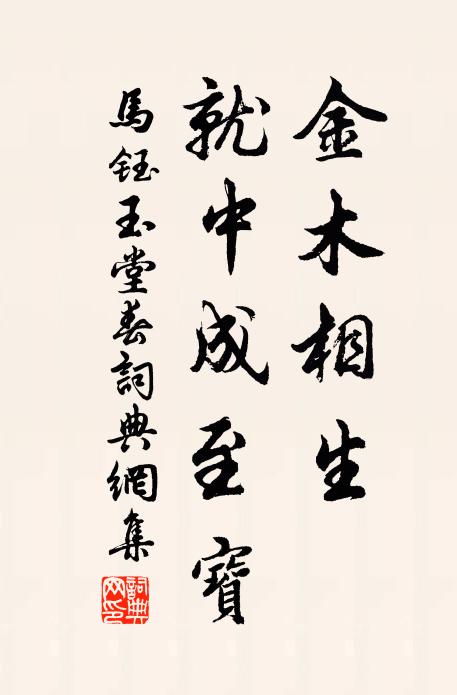 金木相生
就中成至寶
馬鈺玉堂春詞典網集
詞典网印